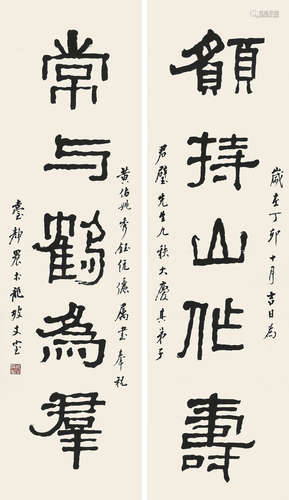 歲在丁卯十月吉日為
願持山作壽
君璧先生九秩大慶其弟子
黃伯鈺伉儷屬書奉祝
常与鶴為羣
臺靜農於龍坡丈室